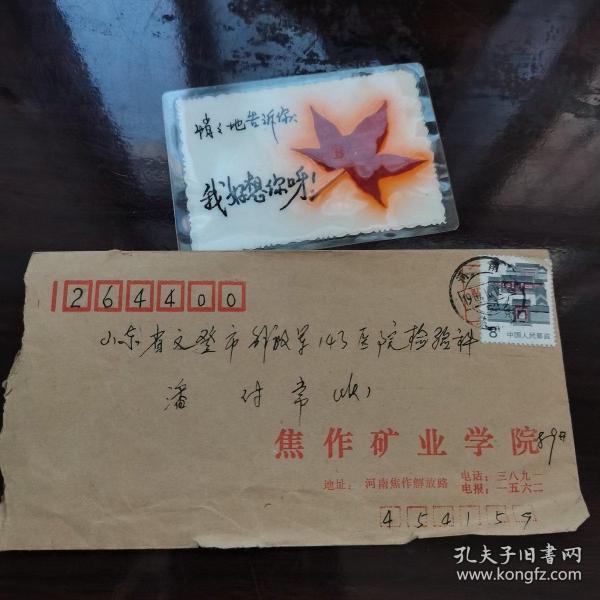 悄々地告诉你:
我好想你呀!
264400
山东省文登市解放军143医院检验科
潘 付 常 (收)
中国人民邮政
8
焦作矿业学院
地址: 河南焦作解放路
电话: 三八九一
电报: 一五六二
454159
孔夫子旧书网
www.kongfz.com